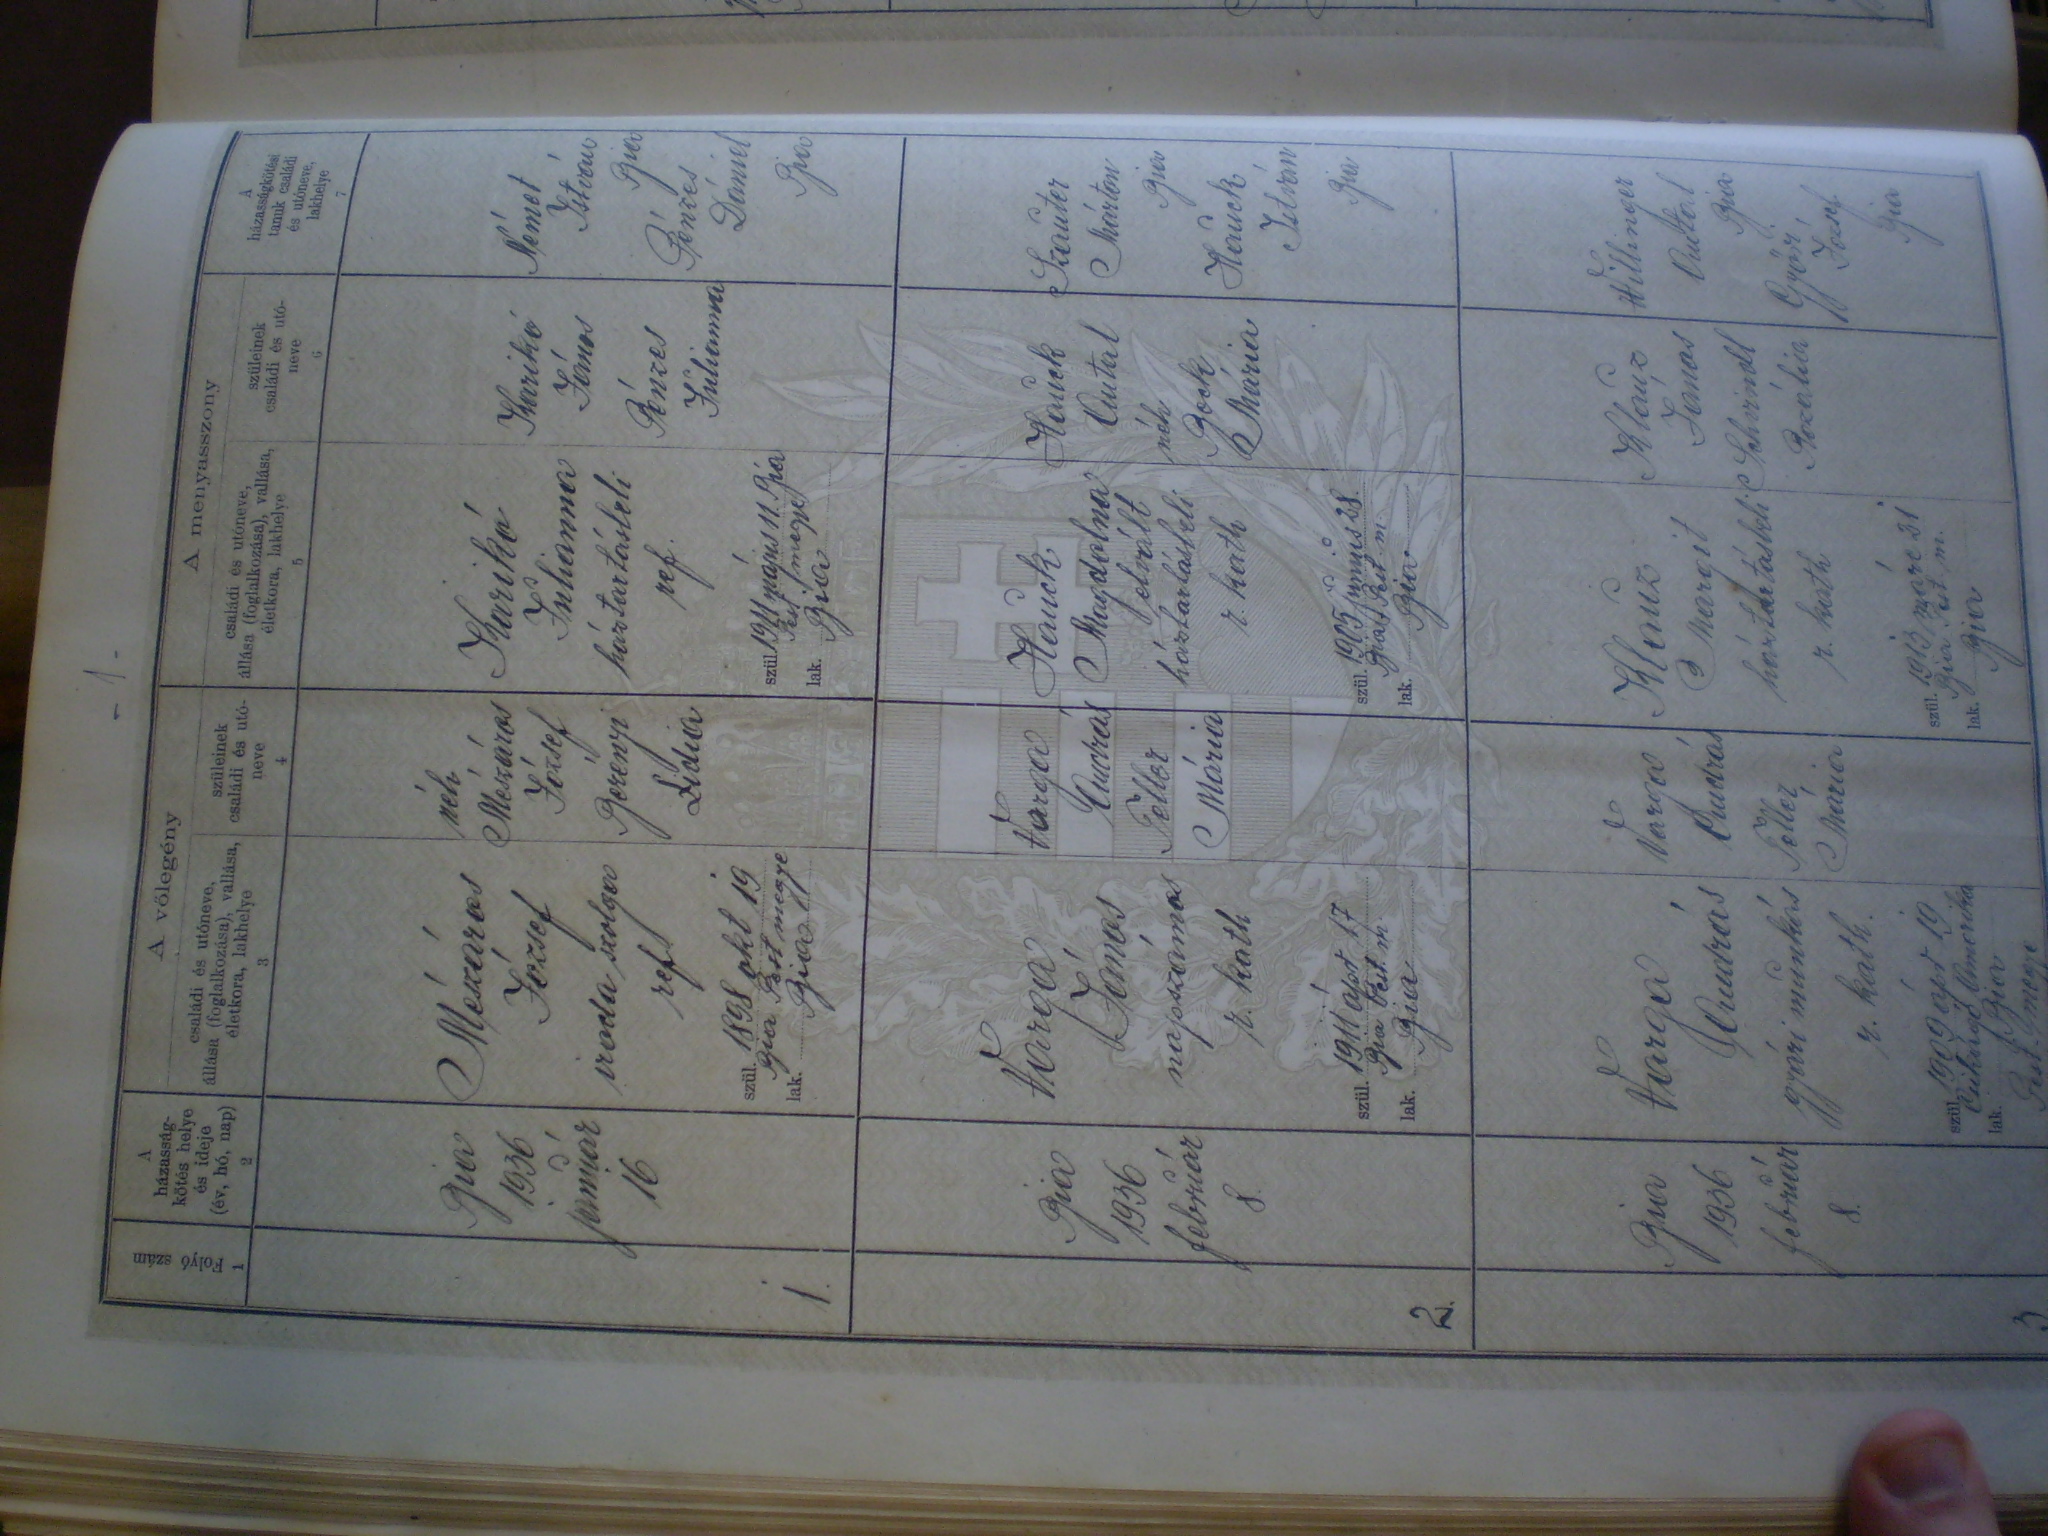 - 1 -
A vőlegény
A menyasszony
Folyó szám
1
A
házasság-
kötés helye
és ideje
(év, hó, nap)
2
családi és utóneve,
állása (foglalkozása), vallása,
életkora, lakhelye
3
szüleinek
családi és utó-
neve
4
családi és utóneve,
állása (foglalkozása), vallása,
életkora, lakhelye
5
szüleinek
családi és utó-
neve
6
A
házasságkötési
tanuk családi
és utóneve,
lakhelye
7
1.
Bia
1936
január
16
Mészáros
József
iroda szolga
ref
szül. 1898 okt 19
Bia Pest megye
lak. Bia
néh
Mészáros
József
Berényi
Lidia
Karikó
Julianna
háztartásbeli
ref.
szül. 1911 május 11. Bia
Pest megye
lak. Bia
Karikó
János
Pénzes
Julianna
Német
István
Bia
Pénzes
Dániel
Bia
2.
Bia
1936
február
8.
Varga
János
napszámos
r. kath
szül. 1911 ápr 17
Bia Pest m
lak. Bia
Varga
András
Feller
Mária
Hauck
Magdolna
felvált
háztartásbeli
r. kath
szül. 1905 junius 28.
Bia Pest m.
lak. Bia
Hauck
Antal
néh
Bock
Mária
Szauter
Márton
Bia
Hauck
István
Bia
3
Bia
1936
február
8.
Varga
András
gyári munkás
r. kath.
szül. 1909 ápr 19
Amerika
lak. Bia
Pest megye
Varga
András
Feller
Mária
Klauz
Margit
háztartásbeli
r. kath
szül. 1913 márc 21
Bia Pest m.
lak. Bia
Klauz
János
Schrindl
Rozália
Willinger
Antal
Bia
Győri
József
Bia